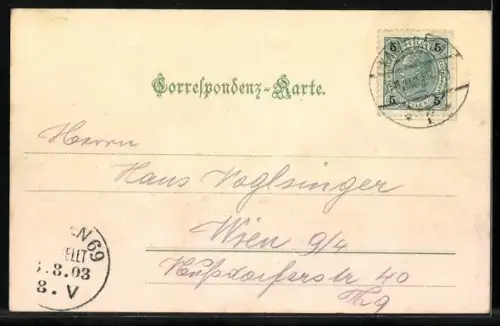 5 5
5 5
Correspondenz-Karte.
Herrn
Hans Voglsinger
Wien 9/4
Nußdorferstr 40
N 69
ELLT
.8.03
8. V